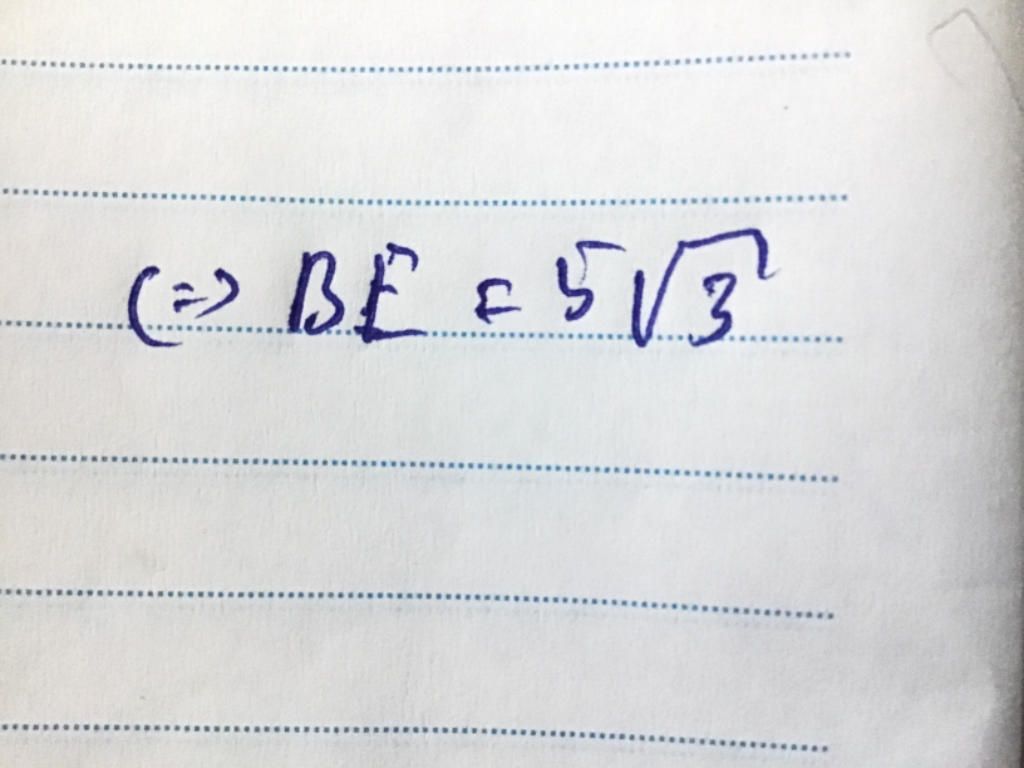 <=> BE = 5√3